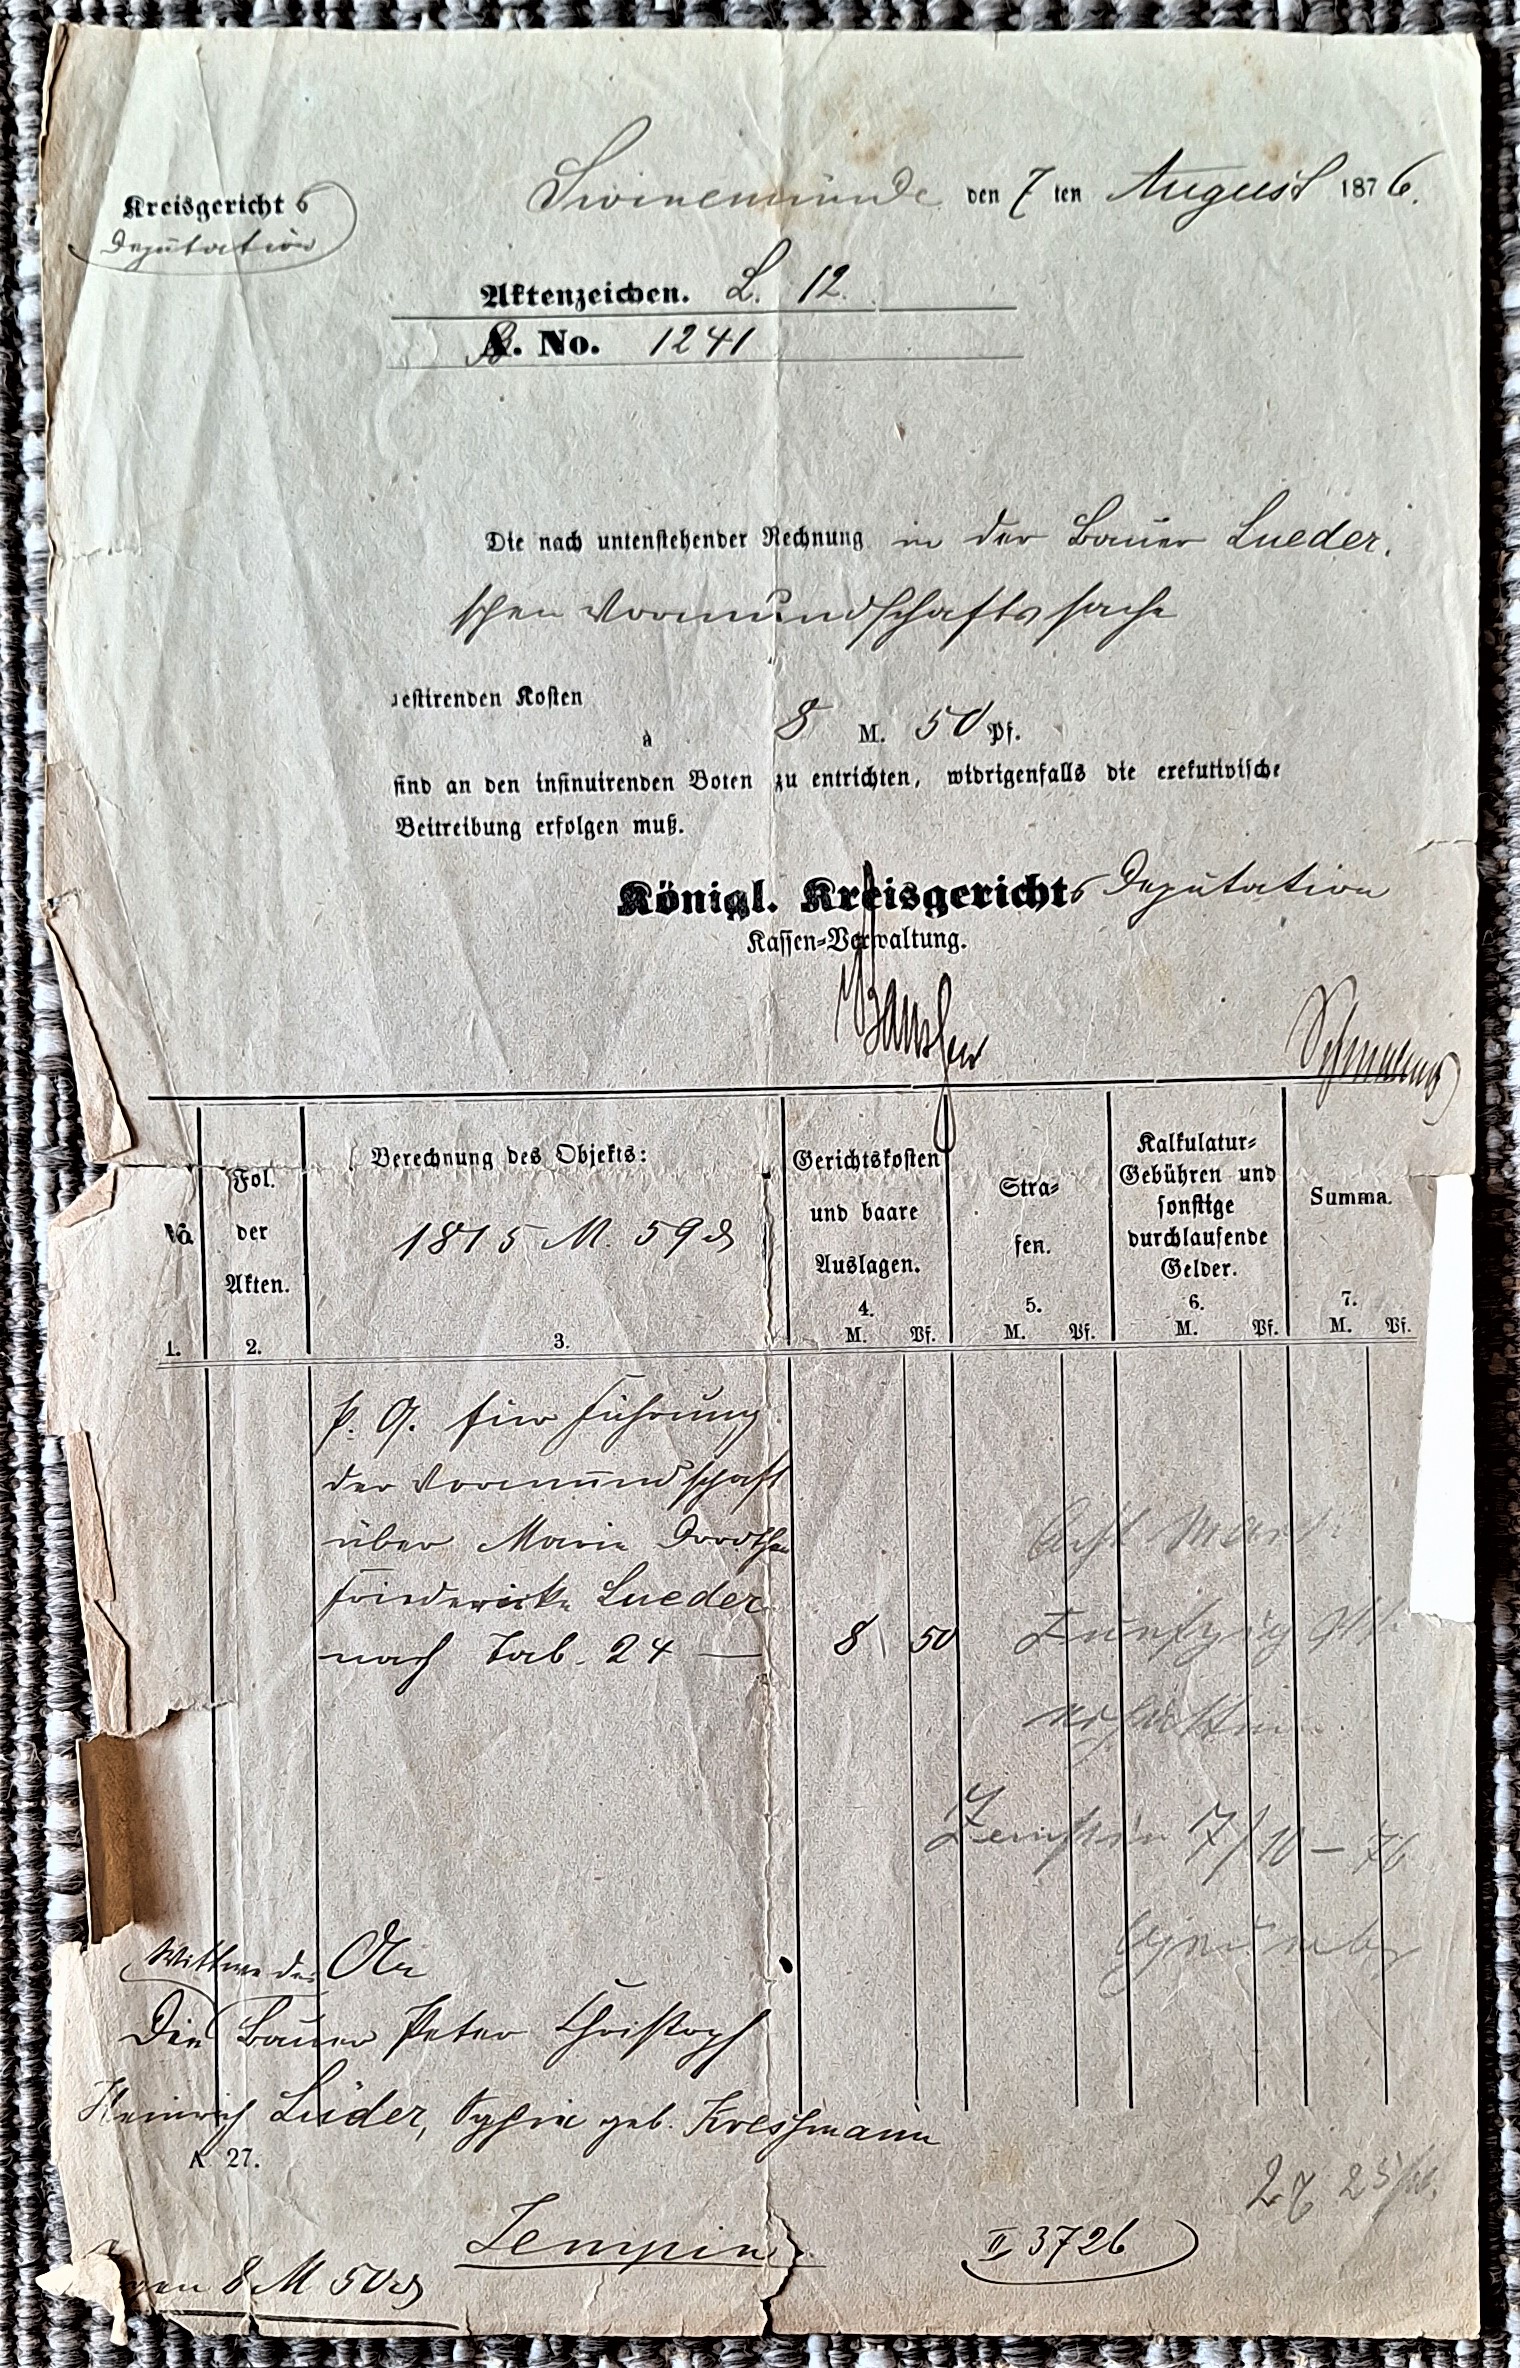 Swinemünde den 7 ten August 1876.
Kreisgerichts
Deputation
Aktenzeichen. L. 12.
No. 1241
Die nach untenstehender Rechnung in der Bauer Lueder.
schen Vormundschaftssache
restirenden Kosten
à 8 M. 50 Pf.
sind an den insinuirenden Boten zu entrichten, widrigenfalls die exekutivische
Beitreibung erfolgen muß.
Königl. Kreisgerichts Deputation
Kassen-Verwaltung.
No
1.
Fol.
der
Akten.
2.
Berechnung des Objekts:
1815 M. 59 ₰
3.
Gerichtskosten
und baare
Auslagen.
4.
M. Pf.
Stra-
fen.
5.
M. Pf.
Kalkulatur-
Gebühren und
sonstige
durchlaufende
Gelder.
6.
M. Pf.
Summa.
7.
M. Pf.
p. q. für Führung
der Vormundschaft
über Marie Dorothea
Friedericke Lueder
nach Tab. 24 — 8 50
Acht Mark
Fünfzig Pf.
erhalten
Zempin 7/10 – 76
Wittwe des An
Die Bauer Peter Christoph
Heinrich Lüder, Sophie geb. Kressmann
A 27.
Zempin
II 3726
gen 8 M 50 ₰